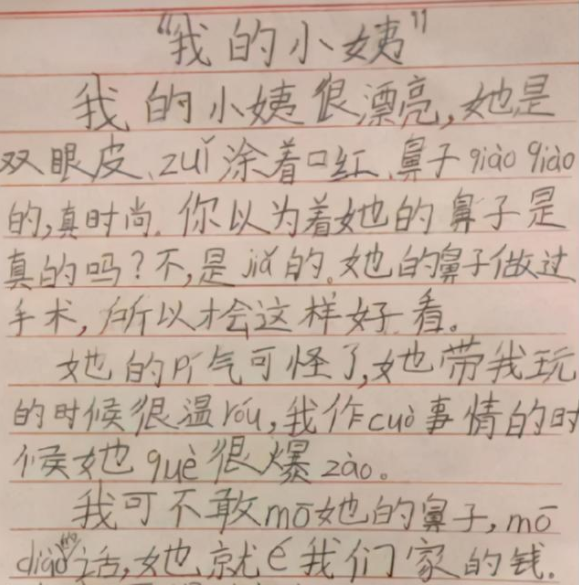 “我的小姨”
我的小姨很漂亮,她是
双眼皮、zuǐ涂着口红、鼻子qiào qiào
的,真时尚.你以为着她的鼻子是
真的吗?不,是jiǎ的。她的鼻子做过
手术,所以才会这样好看。
她的pí气可怪了,她带我玩
的时候很温róu,我作cuò事情的时
候她què很爆zào。
我可不敢mō她的鼻子,mō
diào的话,她就é我们家的钱.